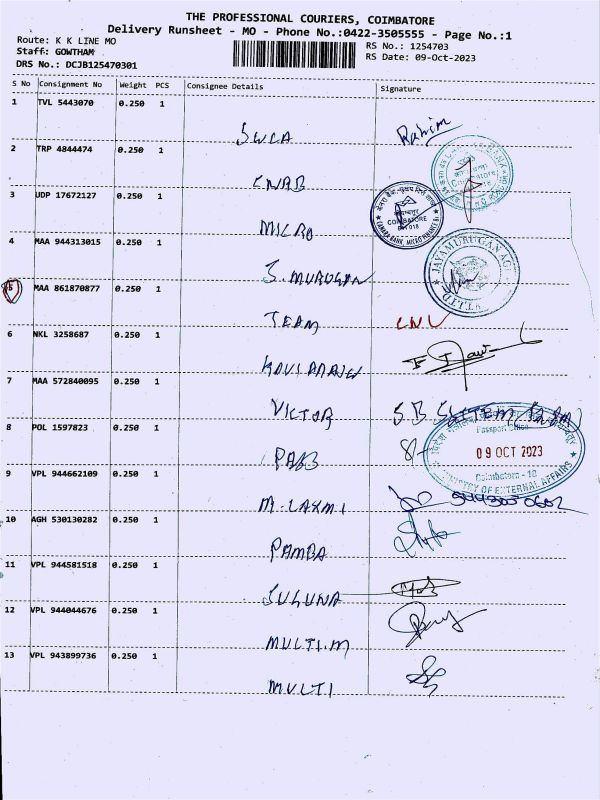 THE PROFESSIONAL COURIERS, COIMBATORE
Delivery Runsheet - MO - Phone No.:0422-3505555 - Page No.:1
Route: K K LINE MO
RS No.: 1254703
Staff: GOWTHAM
RS Date: 09-Oct-2023
DRS No.: DCJB125470301
S No Consignment No Weight PCS Consignee Details Signature
1 TVL 5443070 0.250 1
SWCA Rahim
2 TRP 4844474 0.250 1
CNRB
3 UDP 17672127 0.250 1
COIMBATORE
CANARA BANK, MICRO
MICRO
4 MAA 944313015 0.250 1
JAYAMURUGAN AG
S. MURUGAN
5 MAA 861870877 0.250 1
TEAM CNL
6 NKL 3258687 0.250 1
7 MAA 572840095 0.250 1
VICTOR S B
8 POL 1597823 0.250 1
Passport Office
09 OCT 2023
Coimbatore - 18
MINISTRY OF EXTERNAL AFFAIRS
9 VPL 944662109 0.250 1
M. LAXMI
10 AGH 530130282 0.250 1
PAMBA
11 VPL 944581518 0.250 1
SUGUNA
12 VPL 944044676 0.250 1
MULTI.M
13 VPL 943899736 0.250 1
MULTI